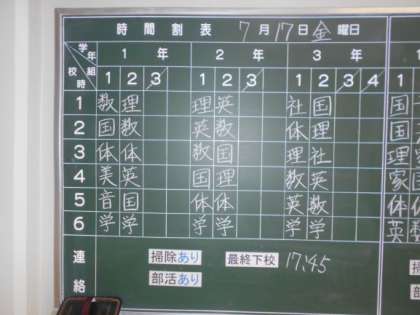 時間割表 7月17日金曜日
学年 1年 2年 3年
校時 組 1 2 3 1 2 3 1 2 3 4
1 数 理 理 英 社 国 国
2 国 数 英 数 体 理 国
3 体 体 数 国 理 社 理
4 美 英 国 理 数 英 家
5 音 国 体 体 英 数 体
6 学 学 学 学 学 学 英
連絡 掃除あり 最終下校 17:45
部活あり